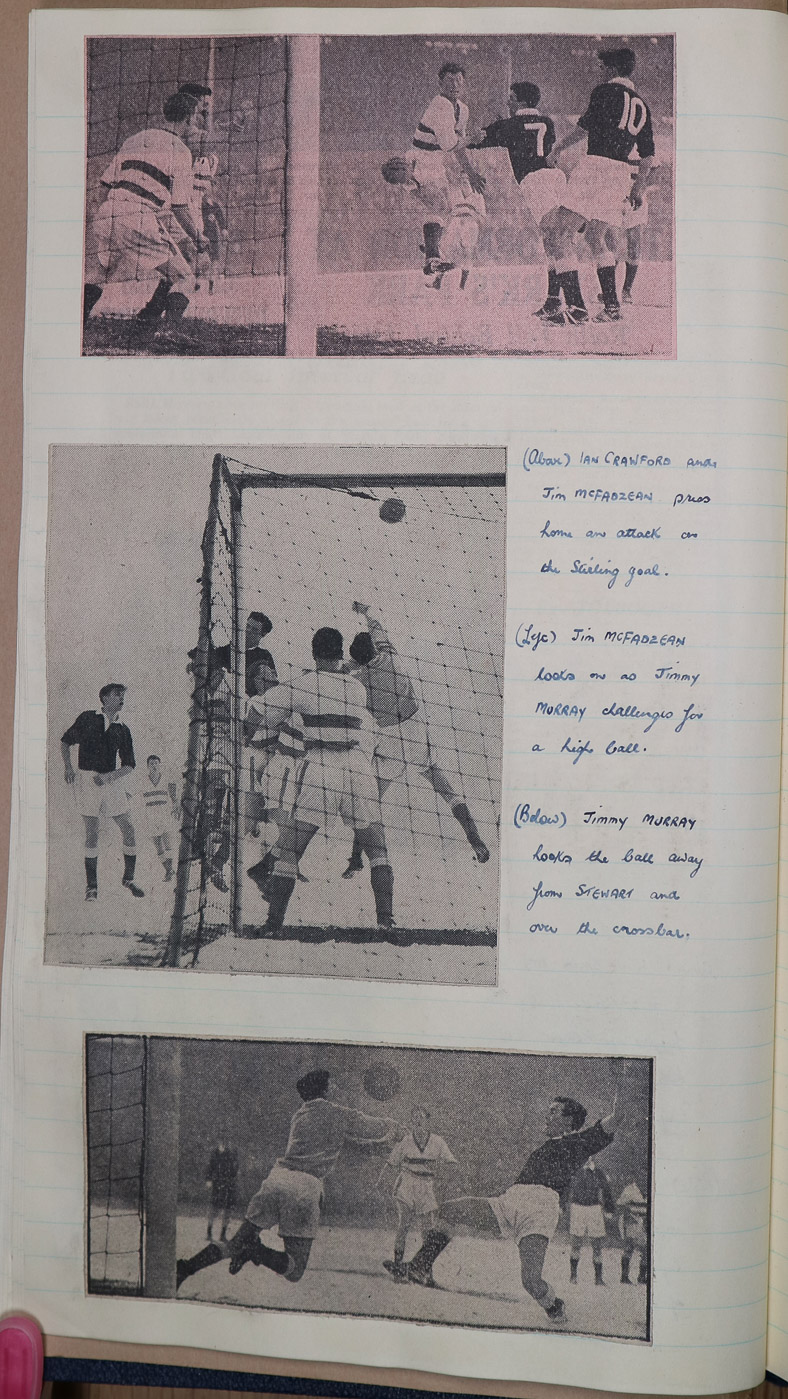 7
10
(Above) IAN CRAWFORD and
Jim MCFADZEAN press
home an attack on
the Stirling goal.
(Left) Jim MCFADZEAN
looks on as Jimmy
MURRAY challenges for
a high ball.
(Below) Jimmy MURRAY
hooks the ball away
from STEWART and
over the crossbar.